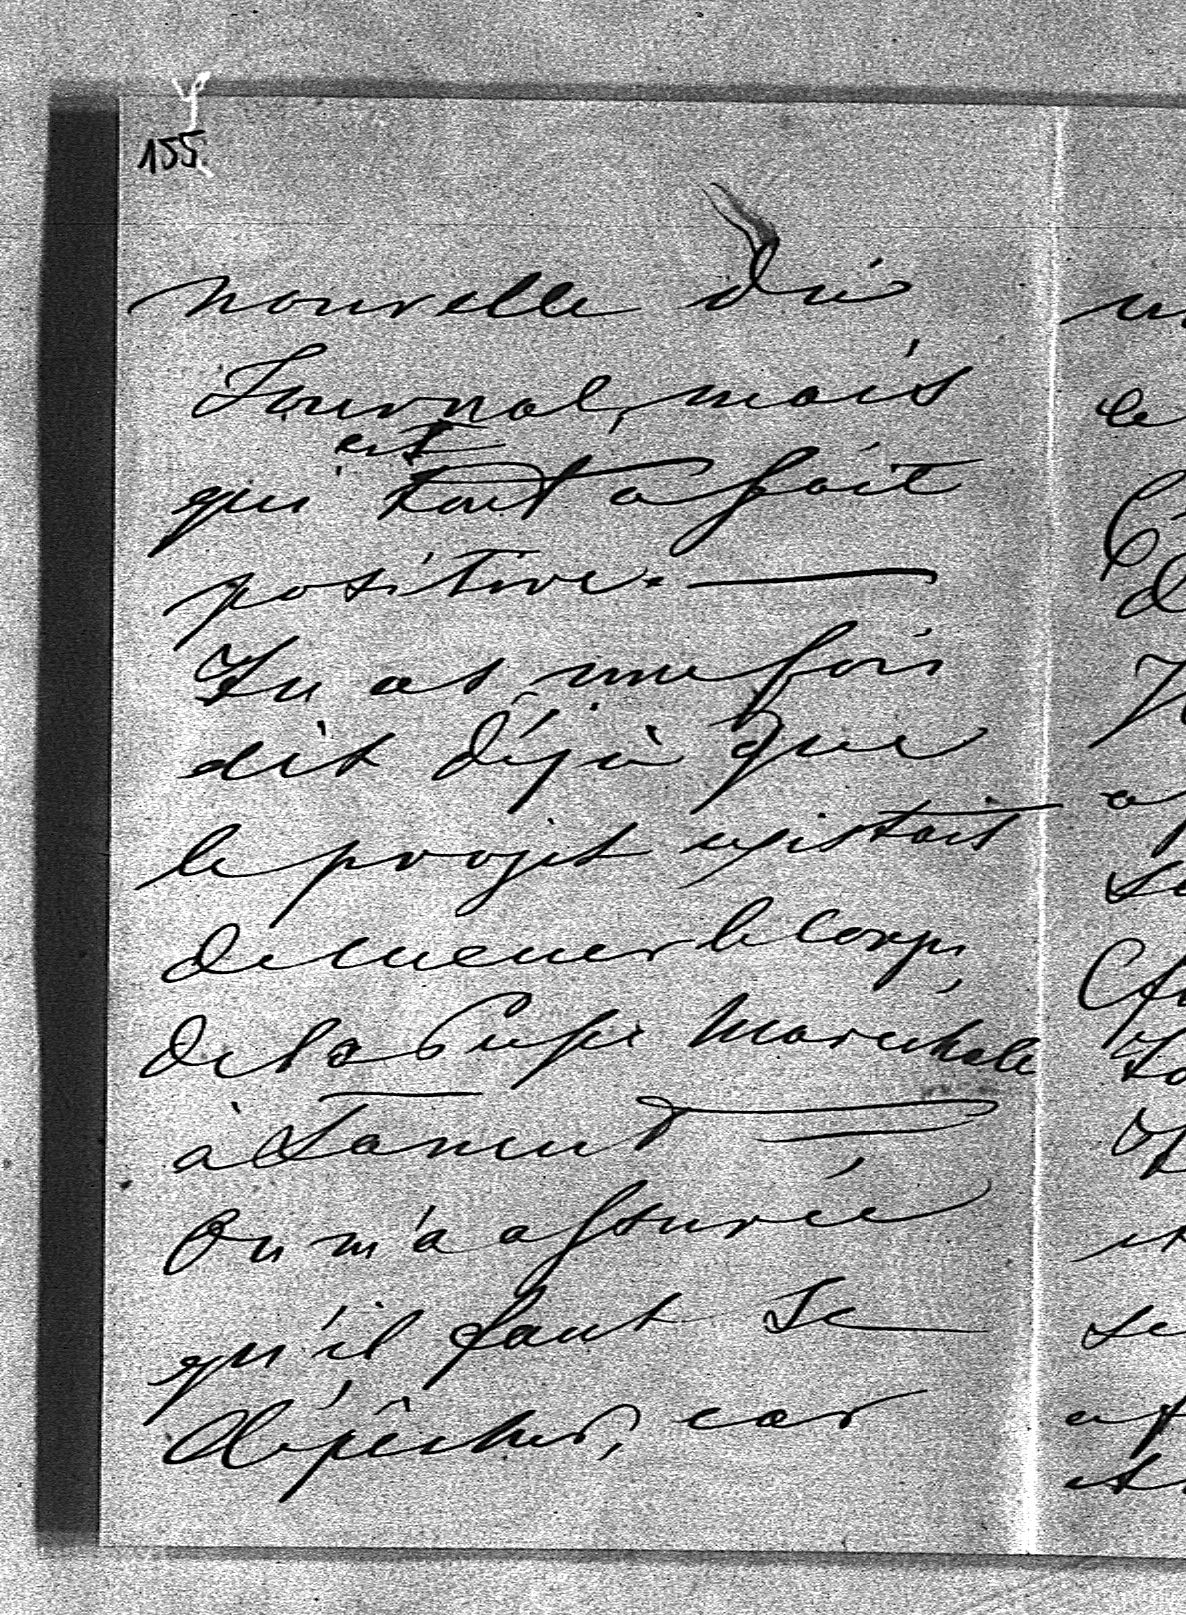 155
nouvelle du
Journal, mais
est
qui tout a fait
positive. —
Tu as une fois
dit déjà que
le projet existait
de mener le Corps
de la Pupe Maréchale
à Lancut
On m'a assurée
qu'il faut se
dépêcher, car